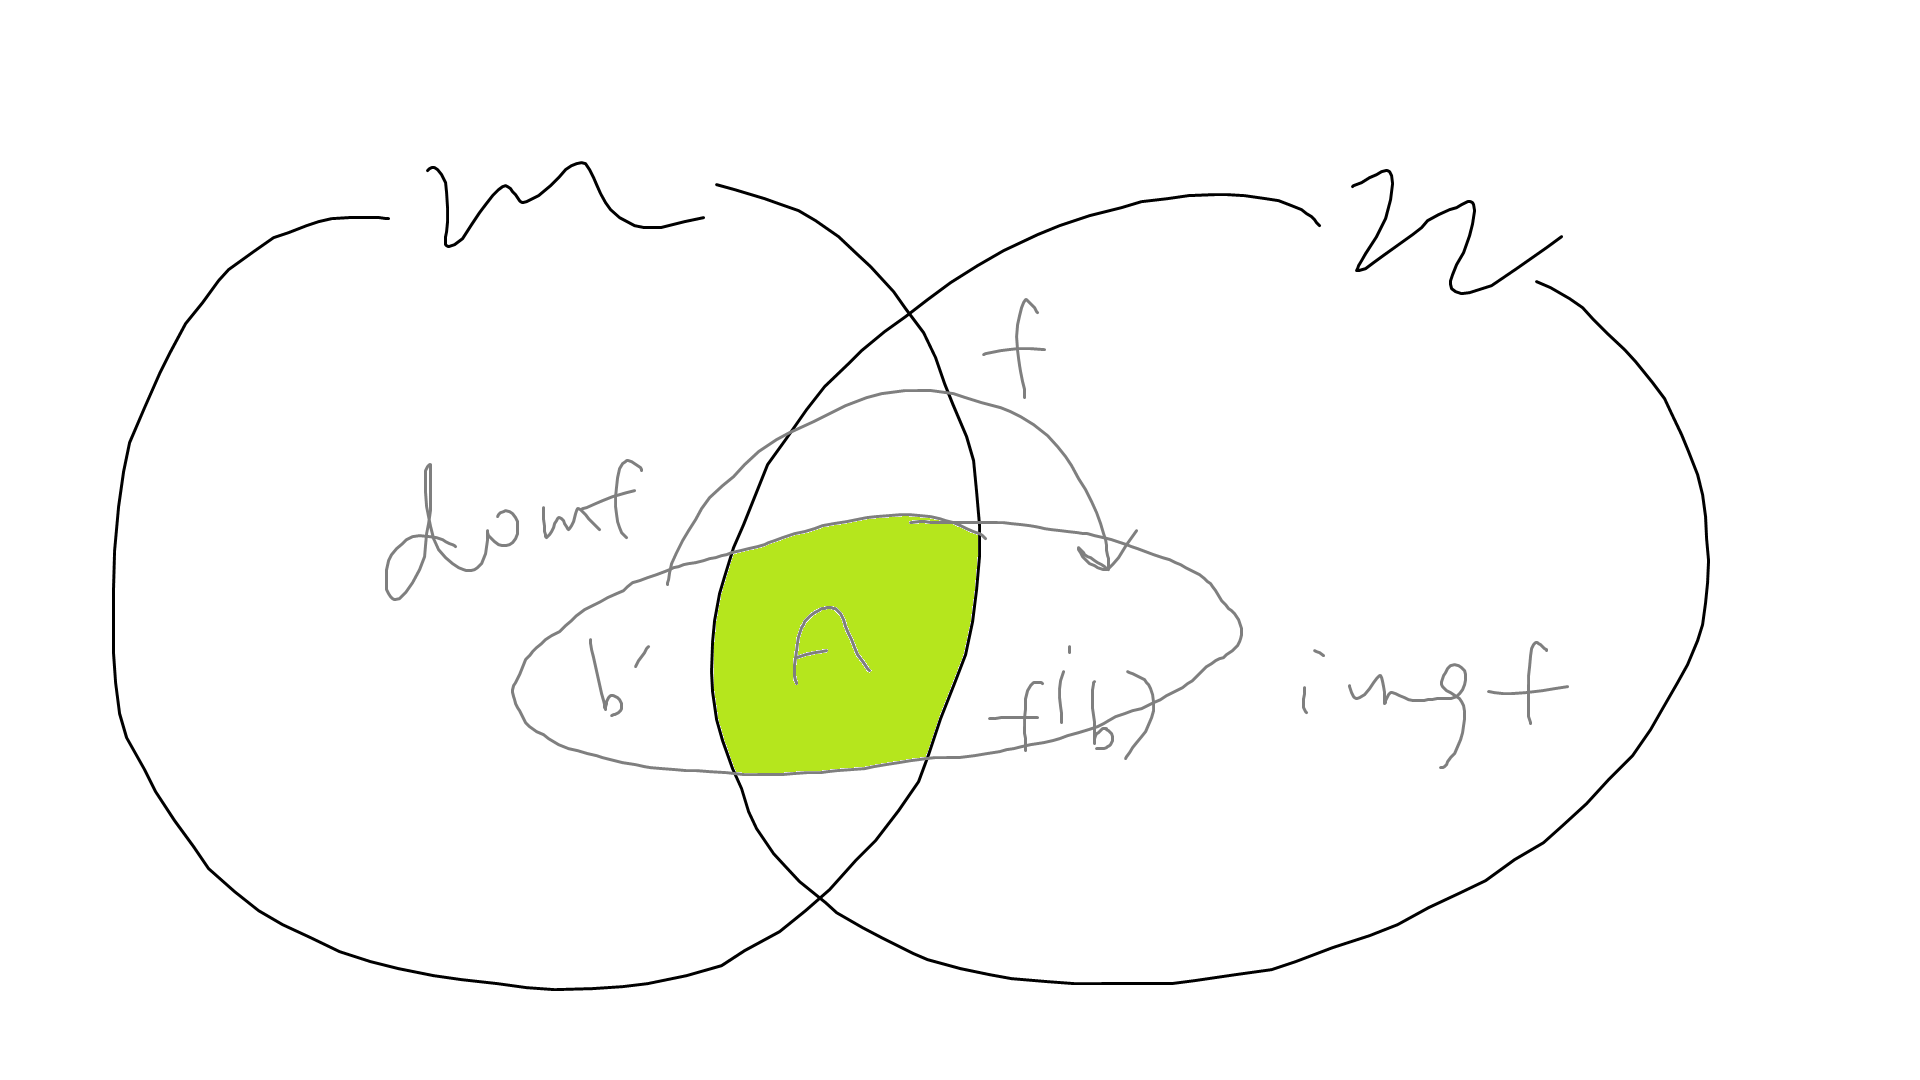 m
n
f
domf
b'
A
f(b)
imgf